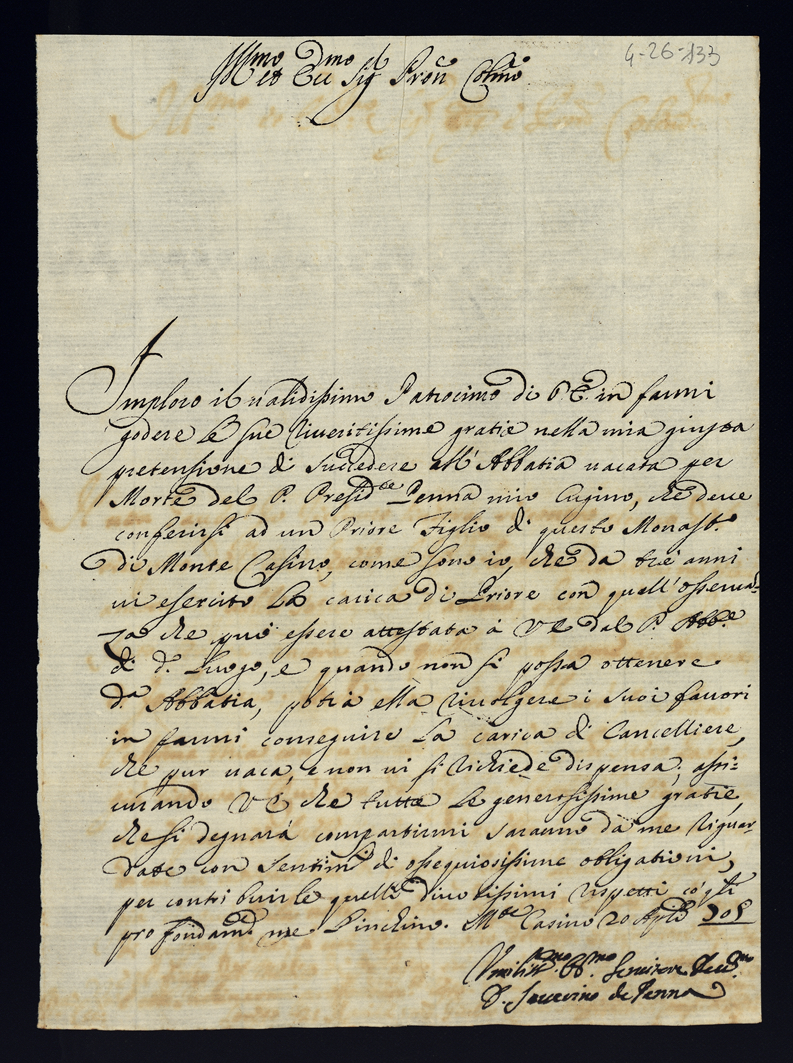 4-26-133
Ill.mo et Ecc.mo Sig Pron Colmo
Imploro il validissimo Patrocinio di V E. in farmi
godere le sue riveritissime gratie nella mia giusta
pretensione di succedere all'Abbatia vacata per
Morte del P. Presid.te Penna mio Cugino, che deve
conferirsi ad un Priore Figlio di questo Monast.o
di Monte Casino, come sono io, che da trè anni
vi esercito la carica di Priore con quell'osserva-
za che può essere attestata à V E dal P. Abb.e
di d.o Luogo, e quando non si possa ottenere
d.a Abbatia, potrà ella rivolgere i suoi favori
in farmi conseguire la carica di Cancelliere,
che pur vaca, e non vi si richiede dispensa; assi=
curando V E che tutte le generosissime gratie,
che si degnarà compartirmi saranno da me riguar-
date con sentim.ti di ossequiosissime obligationi,
per contribuirle quelli divotissimi rispetti cò gli
profondam.te me l'inchino. M.te Casino 20 Aprile 705
Umiliss.mo Obb.mo Servitore Vero
D. Severino de Penna